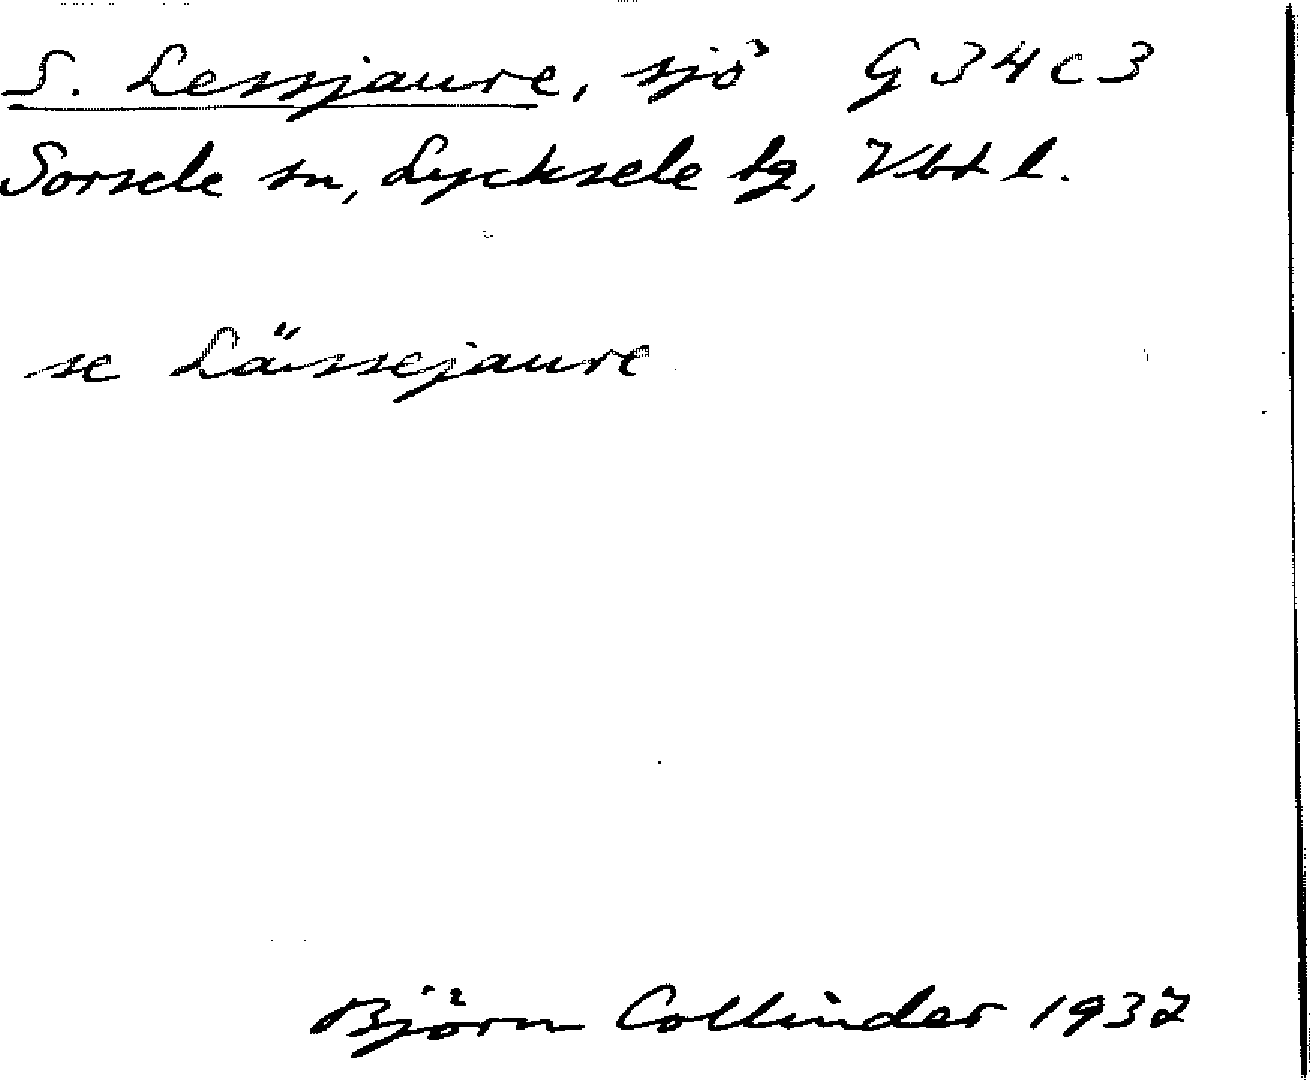 S. Lessjaure, sjö G 34 c 3
Sorsele sn, Lycksele lg, Vbtl.
se Lässejaure
Björn Collinder 1937